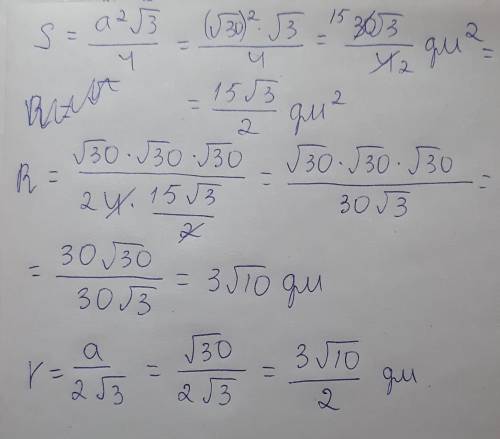 S = a²√3/4 = (√30)²·√3/4 = 15 30√3/4 2 дм² =
= 15√3/2 дм²
R = √30·√30·√30/(2 4·15√3/2) = √30·√30·√30/30√3 =
= 30√30/30√3 = 3√10 дм
r = a/2√3 = √30/2√3 = 3√10/2 дм